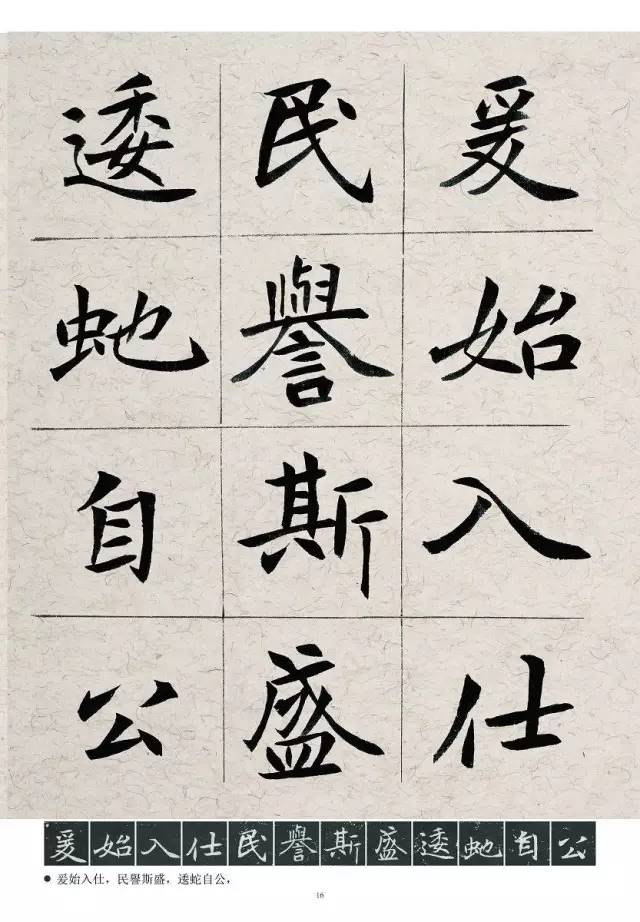 爰始入仕
民譽斯盛
逶虵自公
爰始入仕民譽斯盛逶虵自公
● 爰始入仕，民譽斯盛，逶蛇自公，
16